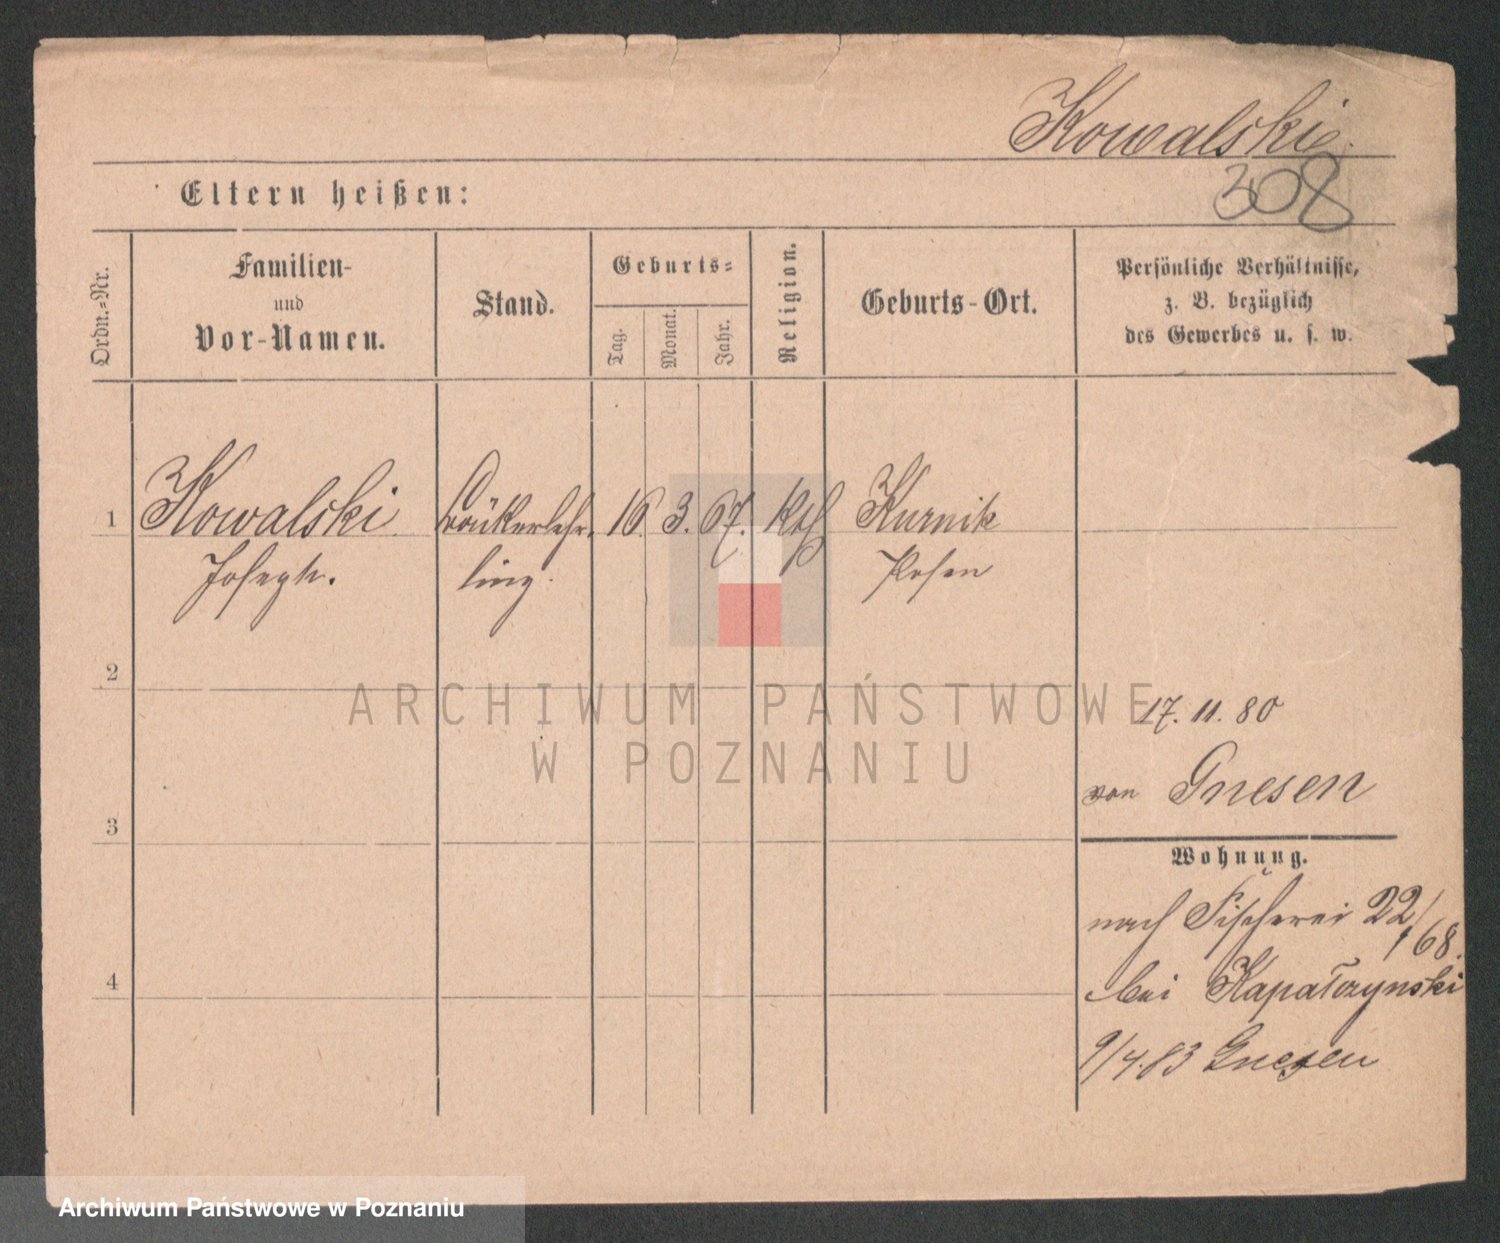 Kowalski.
308
Eltern heißen:
Ordn.-Nr.
Familien-
und
Vor-Namen.
Stand.
Geburts-
Tag.
Monat.
Jahr.
Religion.
Geburts-Ort.
Persönliche Verhältnisse,
z. B. bezüglich
des Gewerbes u. s. w.
1
Kowalski
Joseph.
Bäckerlehr-
ling.
16. 3. 67. Kth
Kurnik
Posen
2
17. 11. 80
von Gnesen
3
Wohnung.
nach Fischerei 22/68.
bei Kapałczynski
9/4.83 Gnesen
4
ARCHIWUM PAŃSTWOWE
W POZNANIU
Archiwum Państwowe w Poznaniu